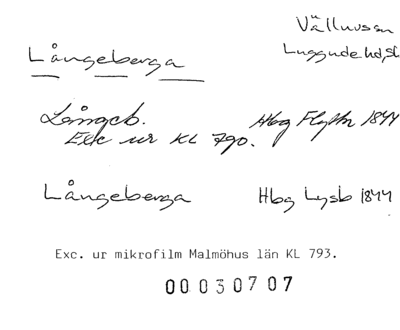 Långeberga
Välluvs sn
Luggude hd, Sk
Långeb. Hbg Flyttn 1844
Exc ur KL 790.
Långeberga Hbg Lysb 1844
Exc. ur mikrofilm Malmöhus län KL 793.
00030707